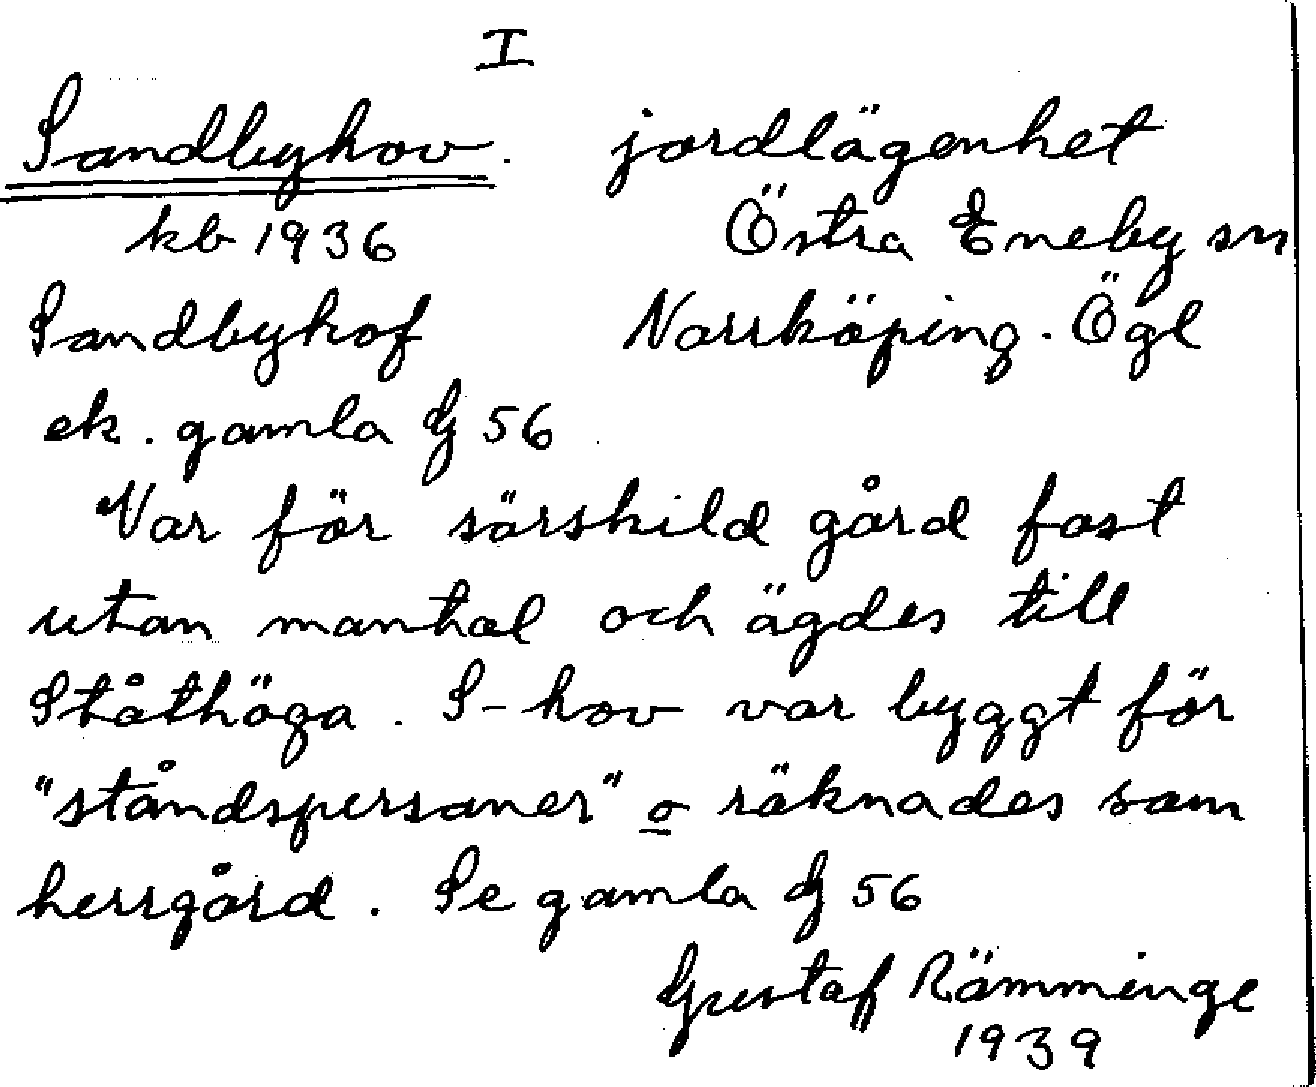 I
Sandbyhov. jordlägenhet
kb 1936 Östra Eneby sn
Sandbyhof Norrköping. Ögl
ek. gamla G 56
Var för särskild gård fast
utan mantal och ägdes till
Ståthöga. S-hov var byggt för
"ståndspersoner" o räknades som
herrgård. Se gamla G 56
Gustaf Rämminge
1939